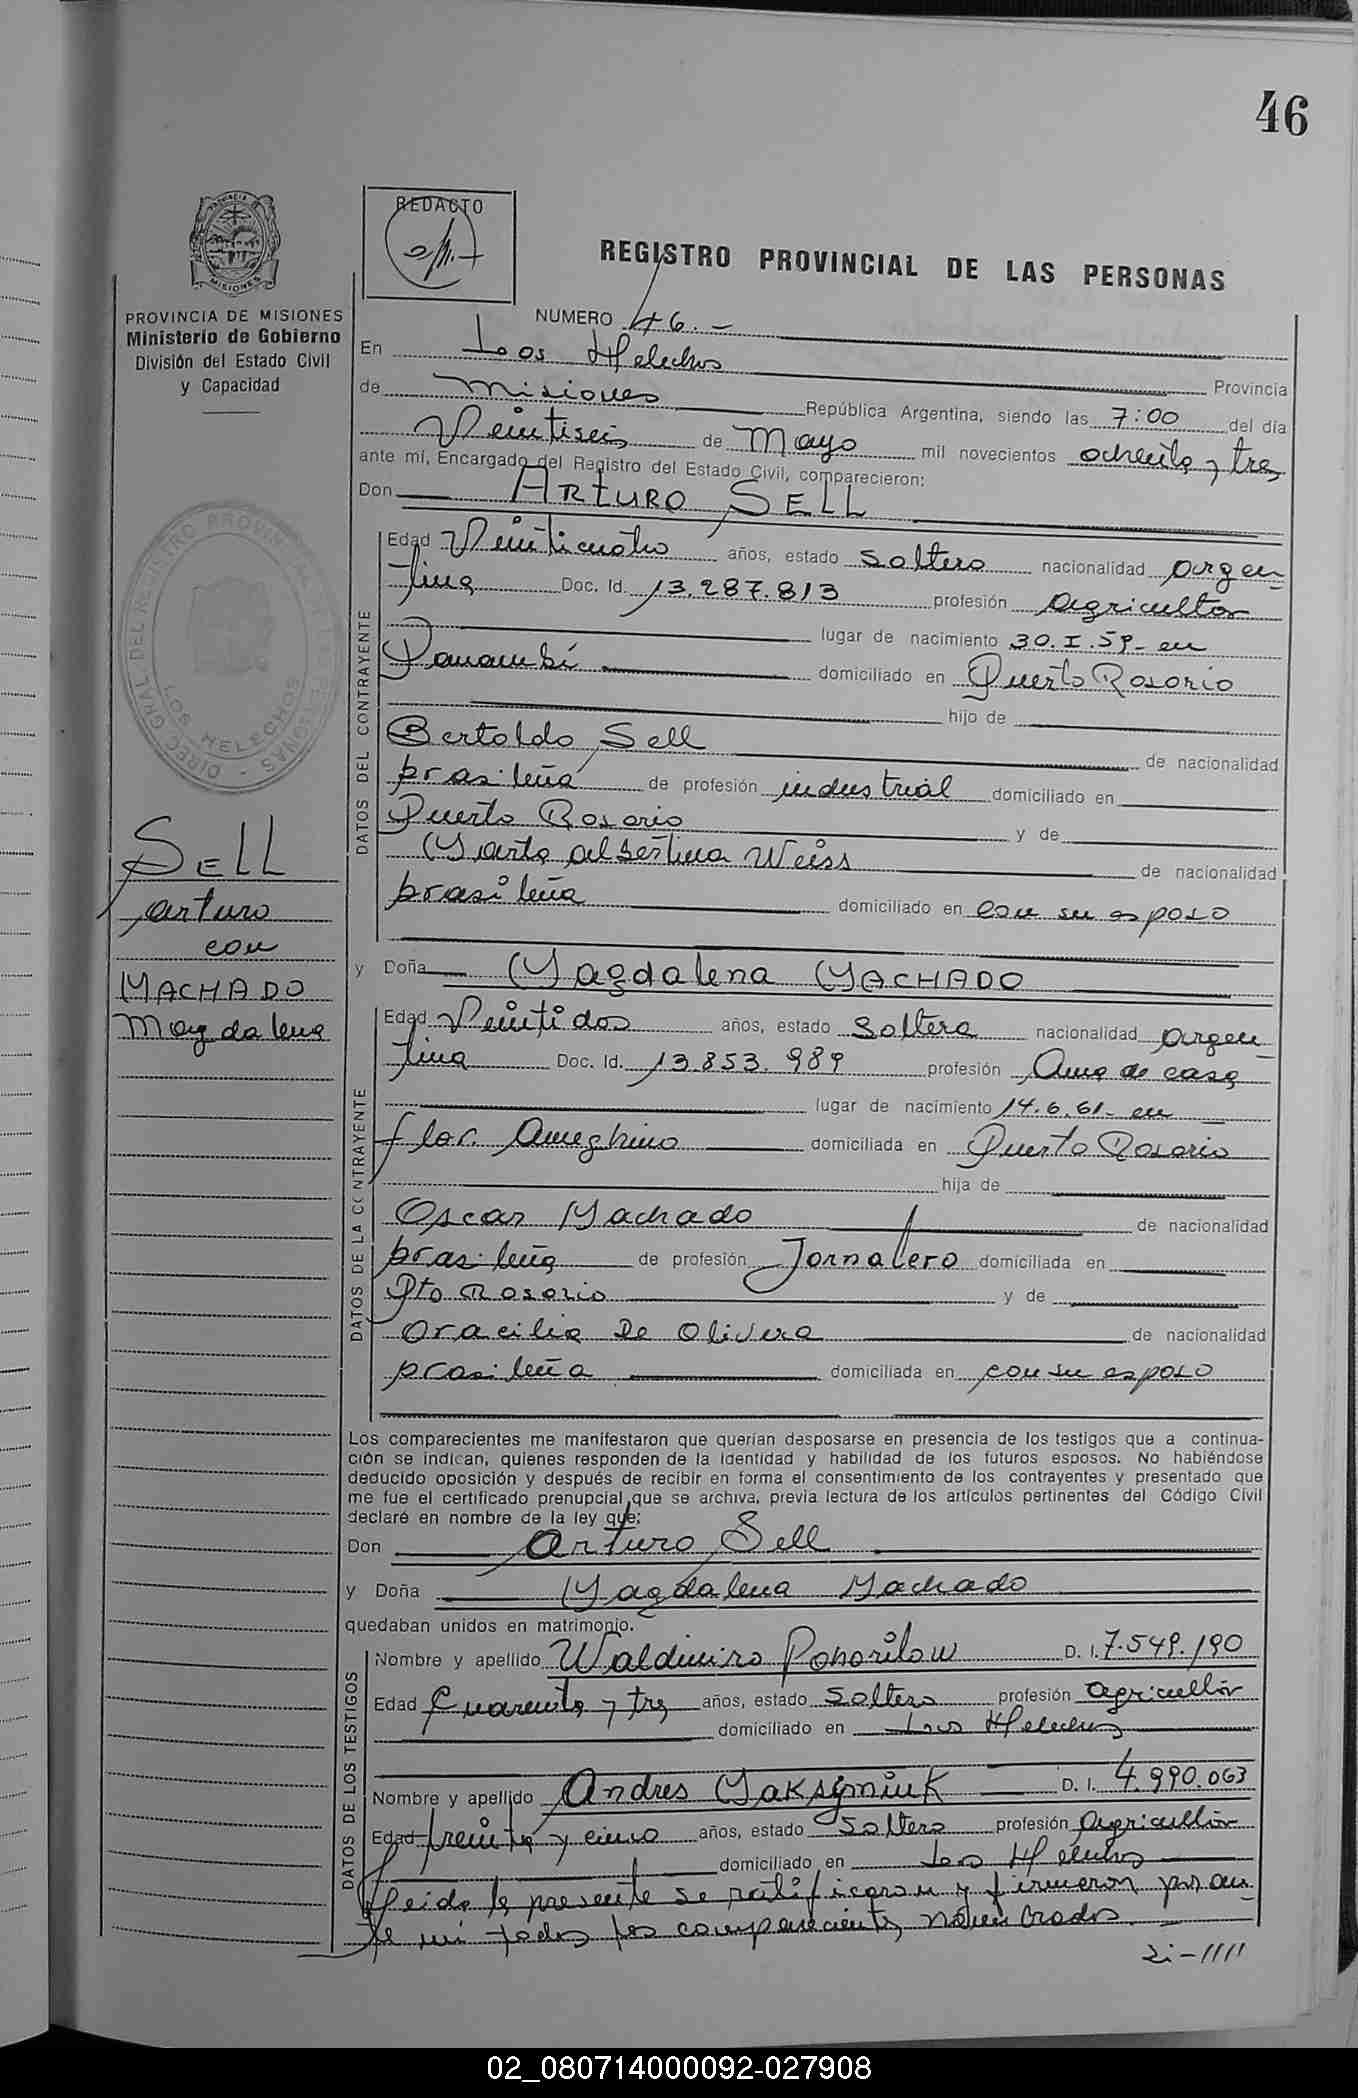 46
REDACTO
REGISTRO PROVINCIAL DE LAS PERSONAS
PROVINCIA DE MISIONES
Ministerio de Gobierno
División del Estado Civil
y Capacidad
NUMERO 46.-
En Los Helechos Provincia
de Misiones República Argentina, siendo las 7:00 del día
Veintiseis de Mayo mil novecientos ochenta y tres
ante mí, Encargado del Registro del Estado Civil, comparecieron:
Don ARTURO SELL
DATOS DEL CONTRAYENTE
Edad Veinticuatro años, estado soltero nacionalidad argen
tina Doc. Id. 13.287.813 profesión agricultor
lugar de nacimiento 30.I.59- en
Panambí domiciliado en Puerto Rosario
hijo de
Bertoldo Sell de nacionalidad
brasileña de profesión industrial domiciliado en
Puerto Rosario y de
Marta Albertina Weiss de nacionalidad
brasileña domiciliado en con su esposo
DIREC. GRAL. DEL REGISTRO PROVINCIAL DE LAS PERSONAS
LOS HELECHOS
SELL
Arturo
con
MACHADO
Magdalena
y Doña Magdalena MACHADO
DATOS DE LA CONTRAYENTE
Edad Veintidos años, estado soltera nacionalidad argen
tina Doc. Id. 13.853.989 profesión Ama de casa
lugar de nacimiento 14.6.61- en
flor. Ameghino domiciliada en Puerto Rosario
hija de
Oscar Machado de nacionalidad
brasileña de profesión Jornalero domiciliada en
Pto Rosario y de
Oracilia De Olivera de nacionalidad
brasileña domiciliada en con su esposo
Los comparecientes me manifestaron que querían desposarse en presencia de los testigos que a continua-
ción se indican, quienes responden de la identidad y habilidad de los futuros esposos. No habiéndose
deducido oposición y después de recibir en forma el consentimiento de los contrayentes y presentado que
me fue el certificado prenupcial que se archiva, previa lectura de los artículos pertinentes del Código Civil
declaré en nombre de la ley que:
Don Arturo Sell
y Doña Magdalena Machado
quedaban unidos en matrimonio.
DATOS DE LOS TESTIGOS
Nombre y apellido Waldimiro Pohorilow D. I. 7.549.190
Edad Cuarenta y tres años, estado soltero profesión agricultor
domiciliado en Los Helechos
Nombre y apellido Andres Yaksymiuk D. I. 4.990.063
Edad treinta y cinco años, estado soltero profesión Agricultor
domiciliado en Los Helechos
leida la presente se ratificaron y firmaron por an-
te mi todos los comparecientes nombrados.
02_080714000092-027908